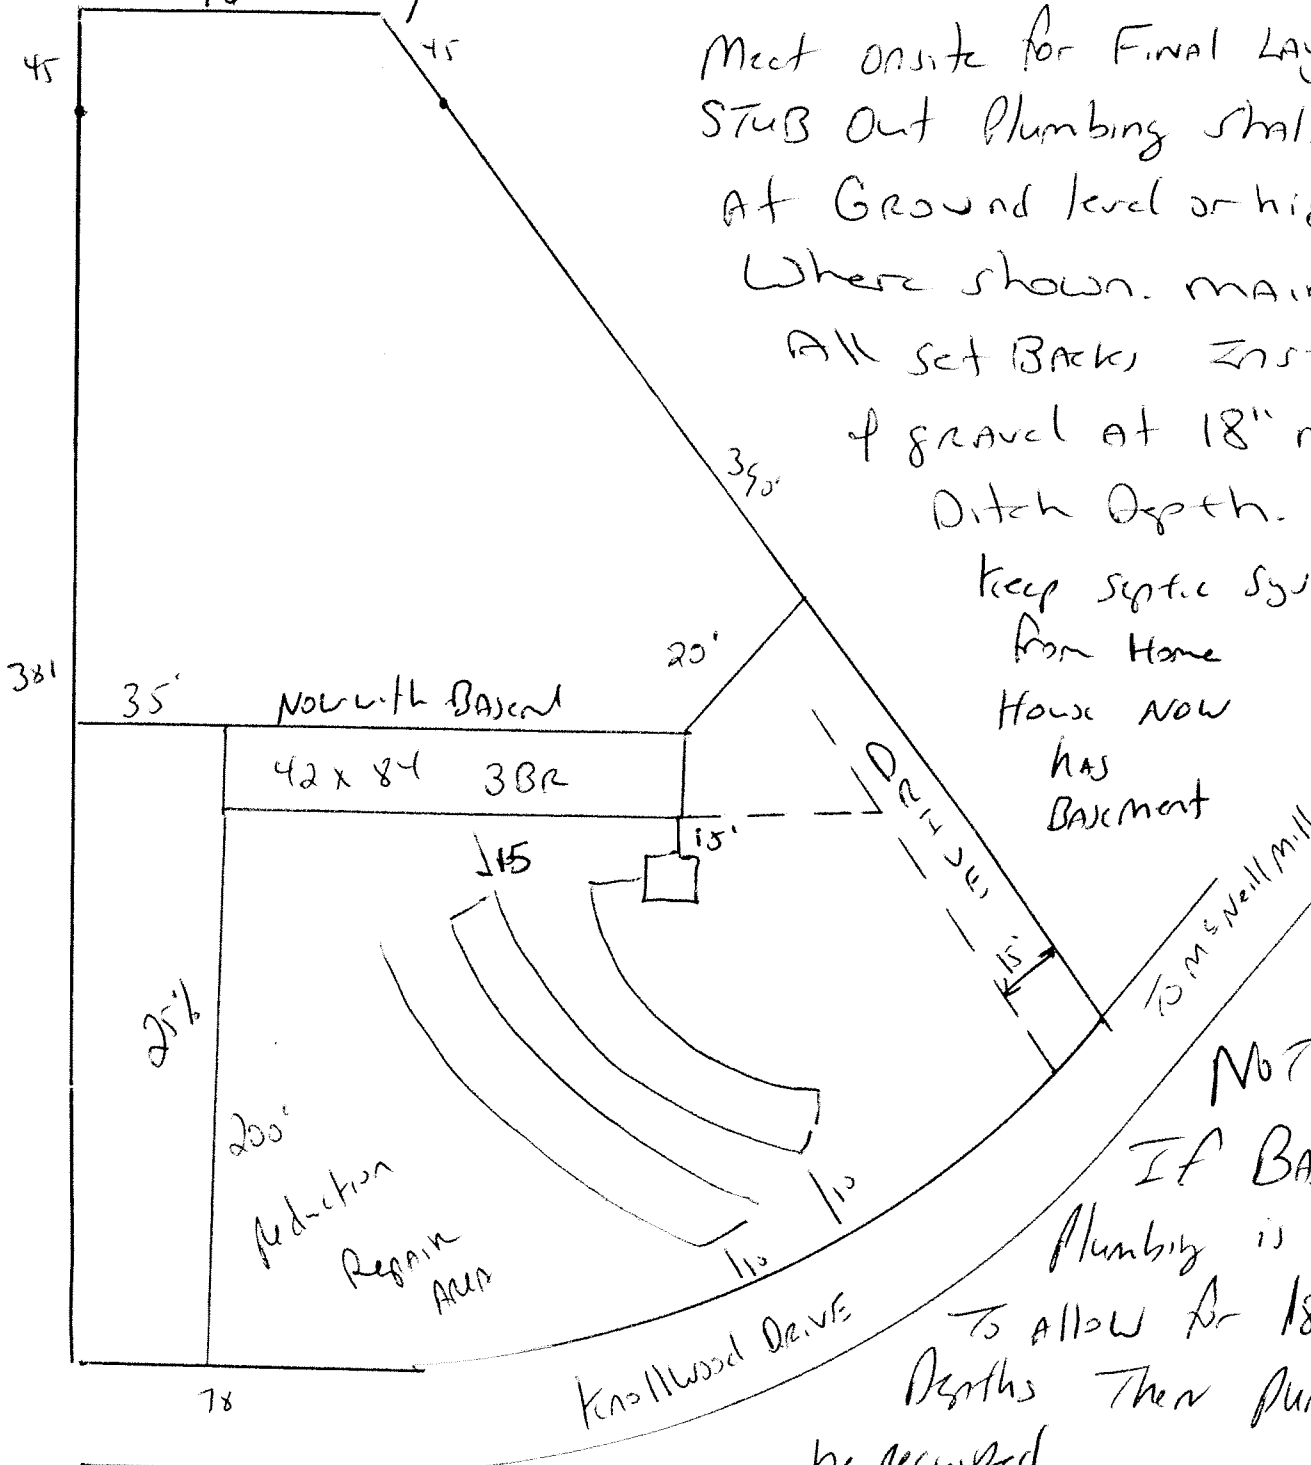 45
45
Meet onsite for Final LAY
STUB Out Plumbing shal
At Ground level or hig
Where shown. MAin
All Set Backs Inst
& gravel At 18" m
Ditch Depth.
Keep Septic Sys
from Home
House NOW
has
Basement
390'
381
35'
20'
Now with Basemt
42 x 84 3BR
DRIVE
15'
15
15'
25%
200'
Reduction
Repair
Area
10
10
78
Knollwood DRIVE
To McNeill Mill
NOT
If BA
Plumbing is
To Allow for 18
Depths Then Pum
be required